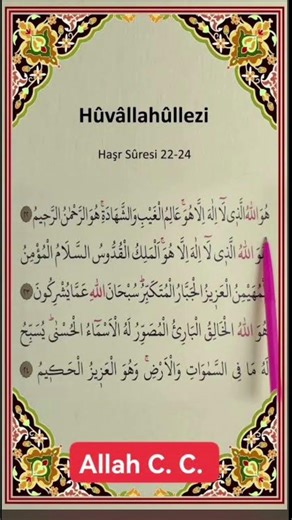 Hûvâllahûllezi
Haşr Sûresi 22-24
هُوَ اللهُ الَّذِي لَا إِلٰهَ إِلَّا هُوَ عَالِمُ الْغَيْبِ وَالشَّهَادَةِ هُوَ الرَّحْمٰنُ الرَّحِيمُ ﴿٢٢﴾
هُوَ اللهُ الَّذِي لَا إِلٰهَ إِلَّا هُوَ الْمَلِكُ الْقُدُّوسُ السَّلَامُ الْمُؤْمِنُ
الْمُهَيْمِنُ الْعَزِيزُ الْجَبَّارُ الْمُتَكَبِّرُ سُبْحَانَ اللهِ عَمَّا يُشْرِكُونَ ﴿٢٣﴾
هُوَ اللهُ الْخَالِقُ الْبَارِئُ الْمُصَوِّرُ لَهُ الْأَسْمَاءُ الْحُسْنٰى يُسَبِّحُ
لَهُ مَا فِي السَّمٰوَاتِ وَالْأَرْضِ وَهُوَ الْعَزِيزُ الْحَكِيمُ ﴿٢٤﴾
Allah C. C.